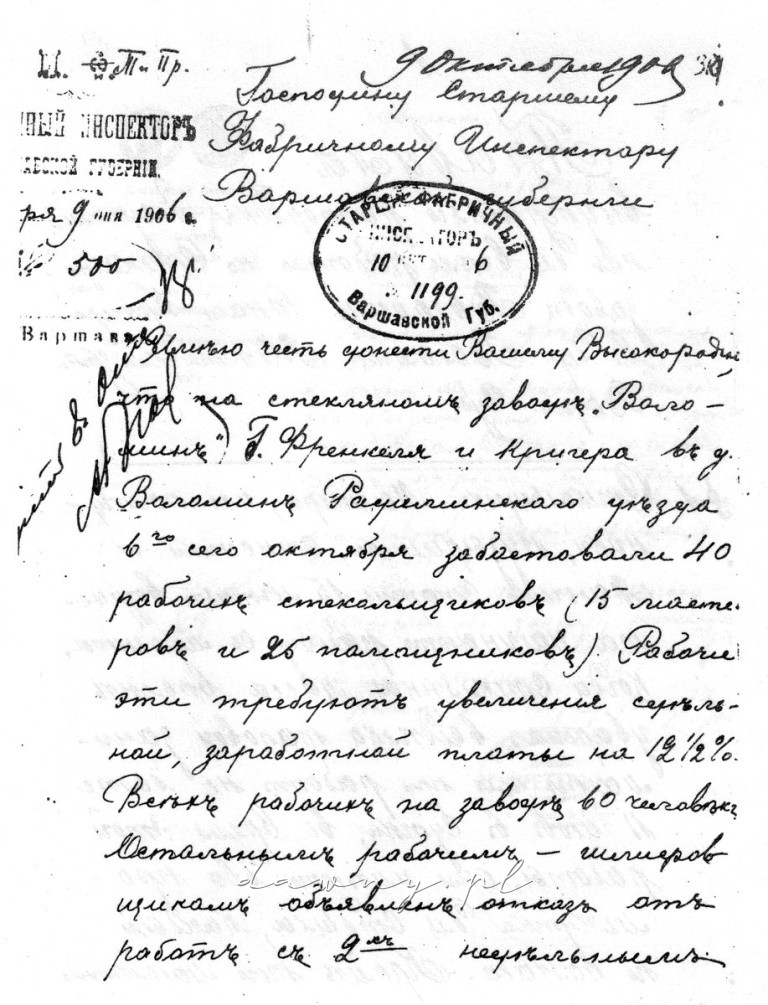 М. Т. и Пр.
9 октября 1906
ННЫЙ ИНСПЕКТОРЪ
АВСКОЙ ГУБЕРНІИ.
9 дня 1906 г.
500
Варшава
Господину Старшему
Фабричному Инспектору
Варшавской губернии
СТАРШІЙ ФАБРИЧНЫЙ
ИНСПЕКТОРЪ
10 ОКТ 6
1199.
Варшавской Губ.
Имѣю честь донести Вашему Высокородію,
что на стекляномъ заводѣ „Воло-
минъ" Г. Френкеля и Кригера въ д.
Воломинъ Радиминскаго уѣзда
6го сего октября забастовали 40
рабочихъ стекольщиковъ (15 масте-
ровъ и 25 помощниковъ). Рабочіе
эти требуютъ увеличенія сдѣль-
ной, заработной платы на 12 1/2 %.
Всѣхъ рабочихъ на заводѣ 60 человѣкъ
Остальнымъ рабочимъ – шлифов
щикамъ объявленъ отказъ отъ
dawny.pl
работъ съ 2хъ недѣльнымъ